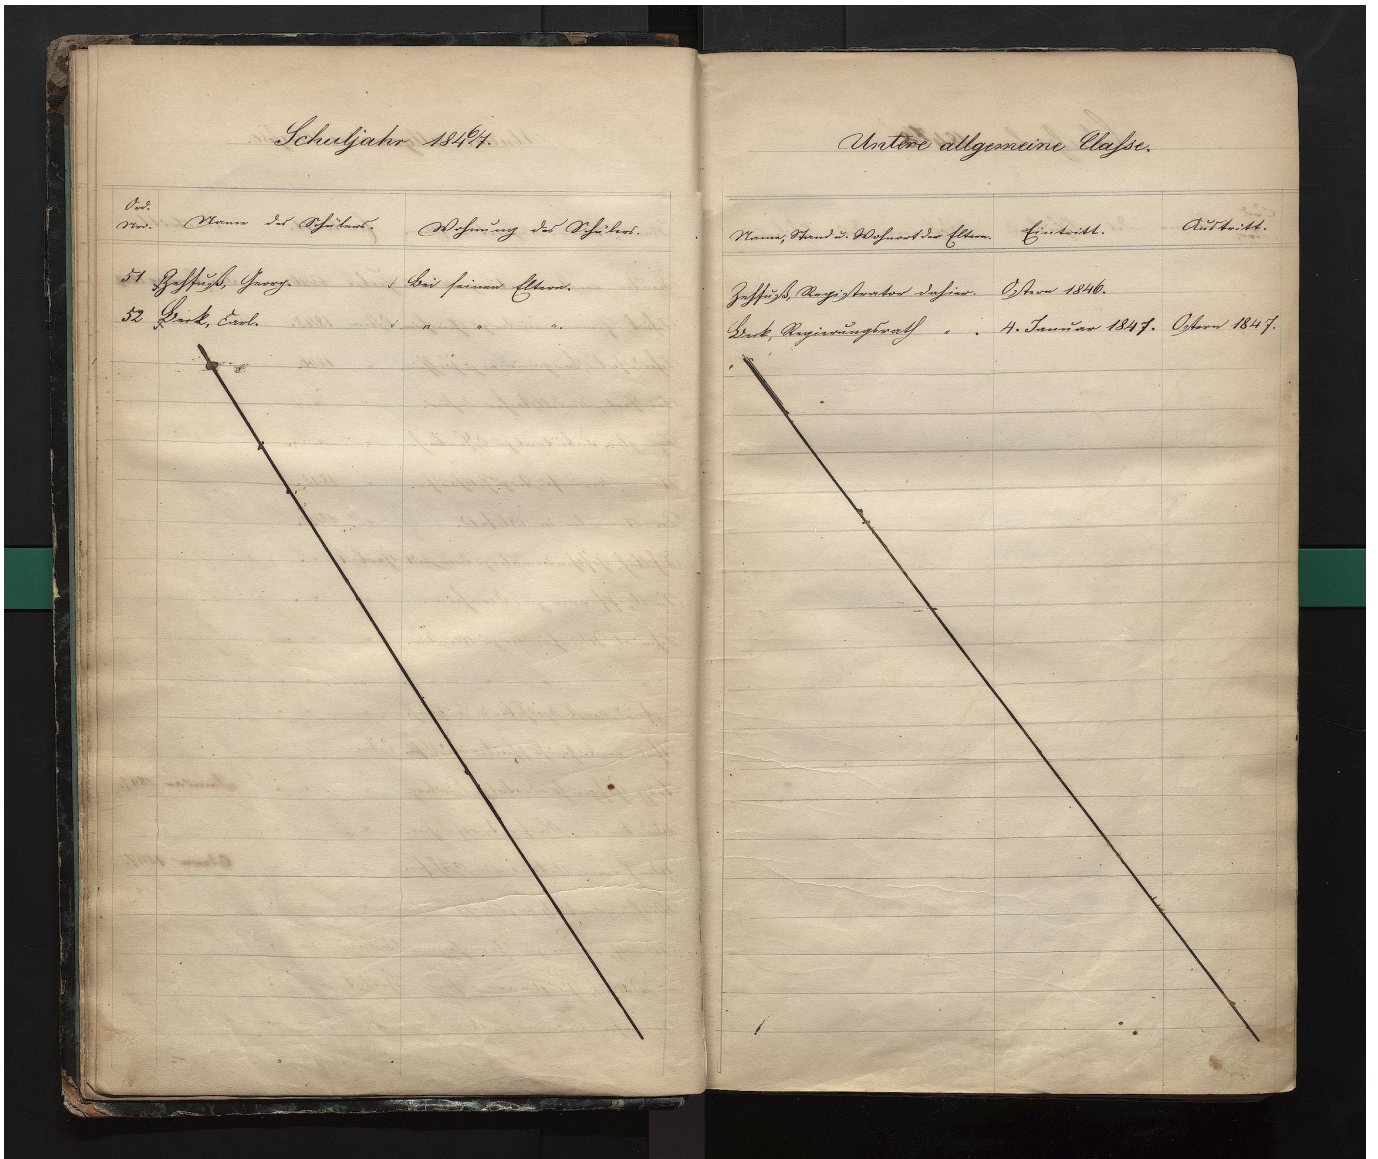 Schuljahr 1846/7.
Untere allgemeine Classe.
Ord. Nro.
Name des Schülers.
Wohnung des Schülers.
Name, Stand u. Wohnort der Eltern.
Eintritt.
Austritt.
51 Zehfuß, Georg. Bei seinen Eltern. Zehfuß, Registrator dahier. Ostern 1846.
52 Beck, Carl. " " ". Beck, Regierungsrath " . 4. Januar 1847. Ostern 1847.